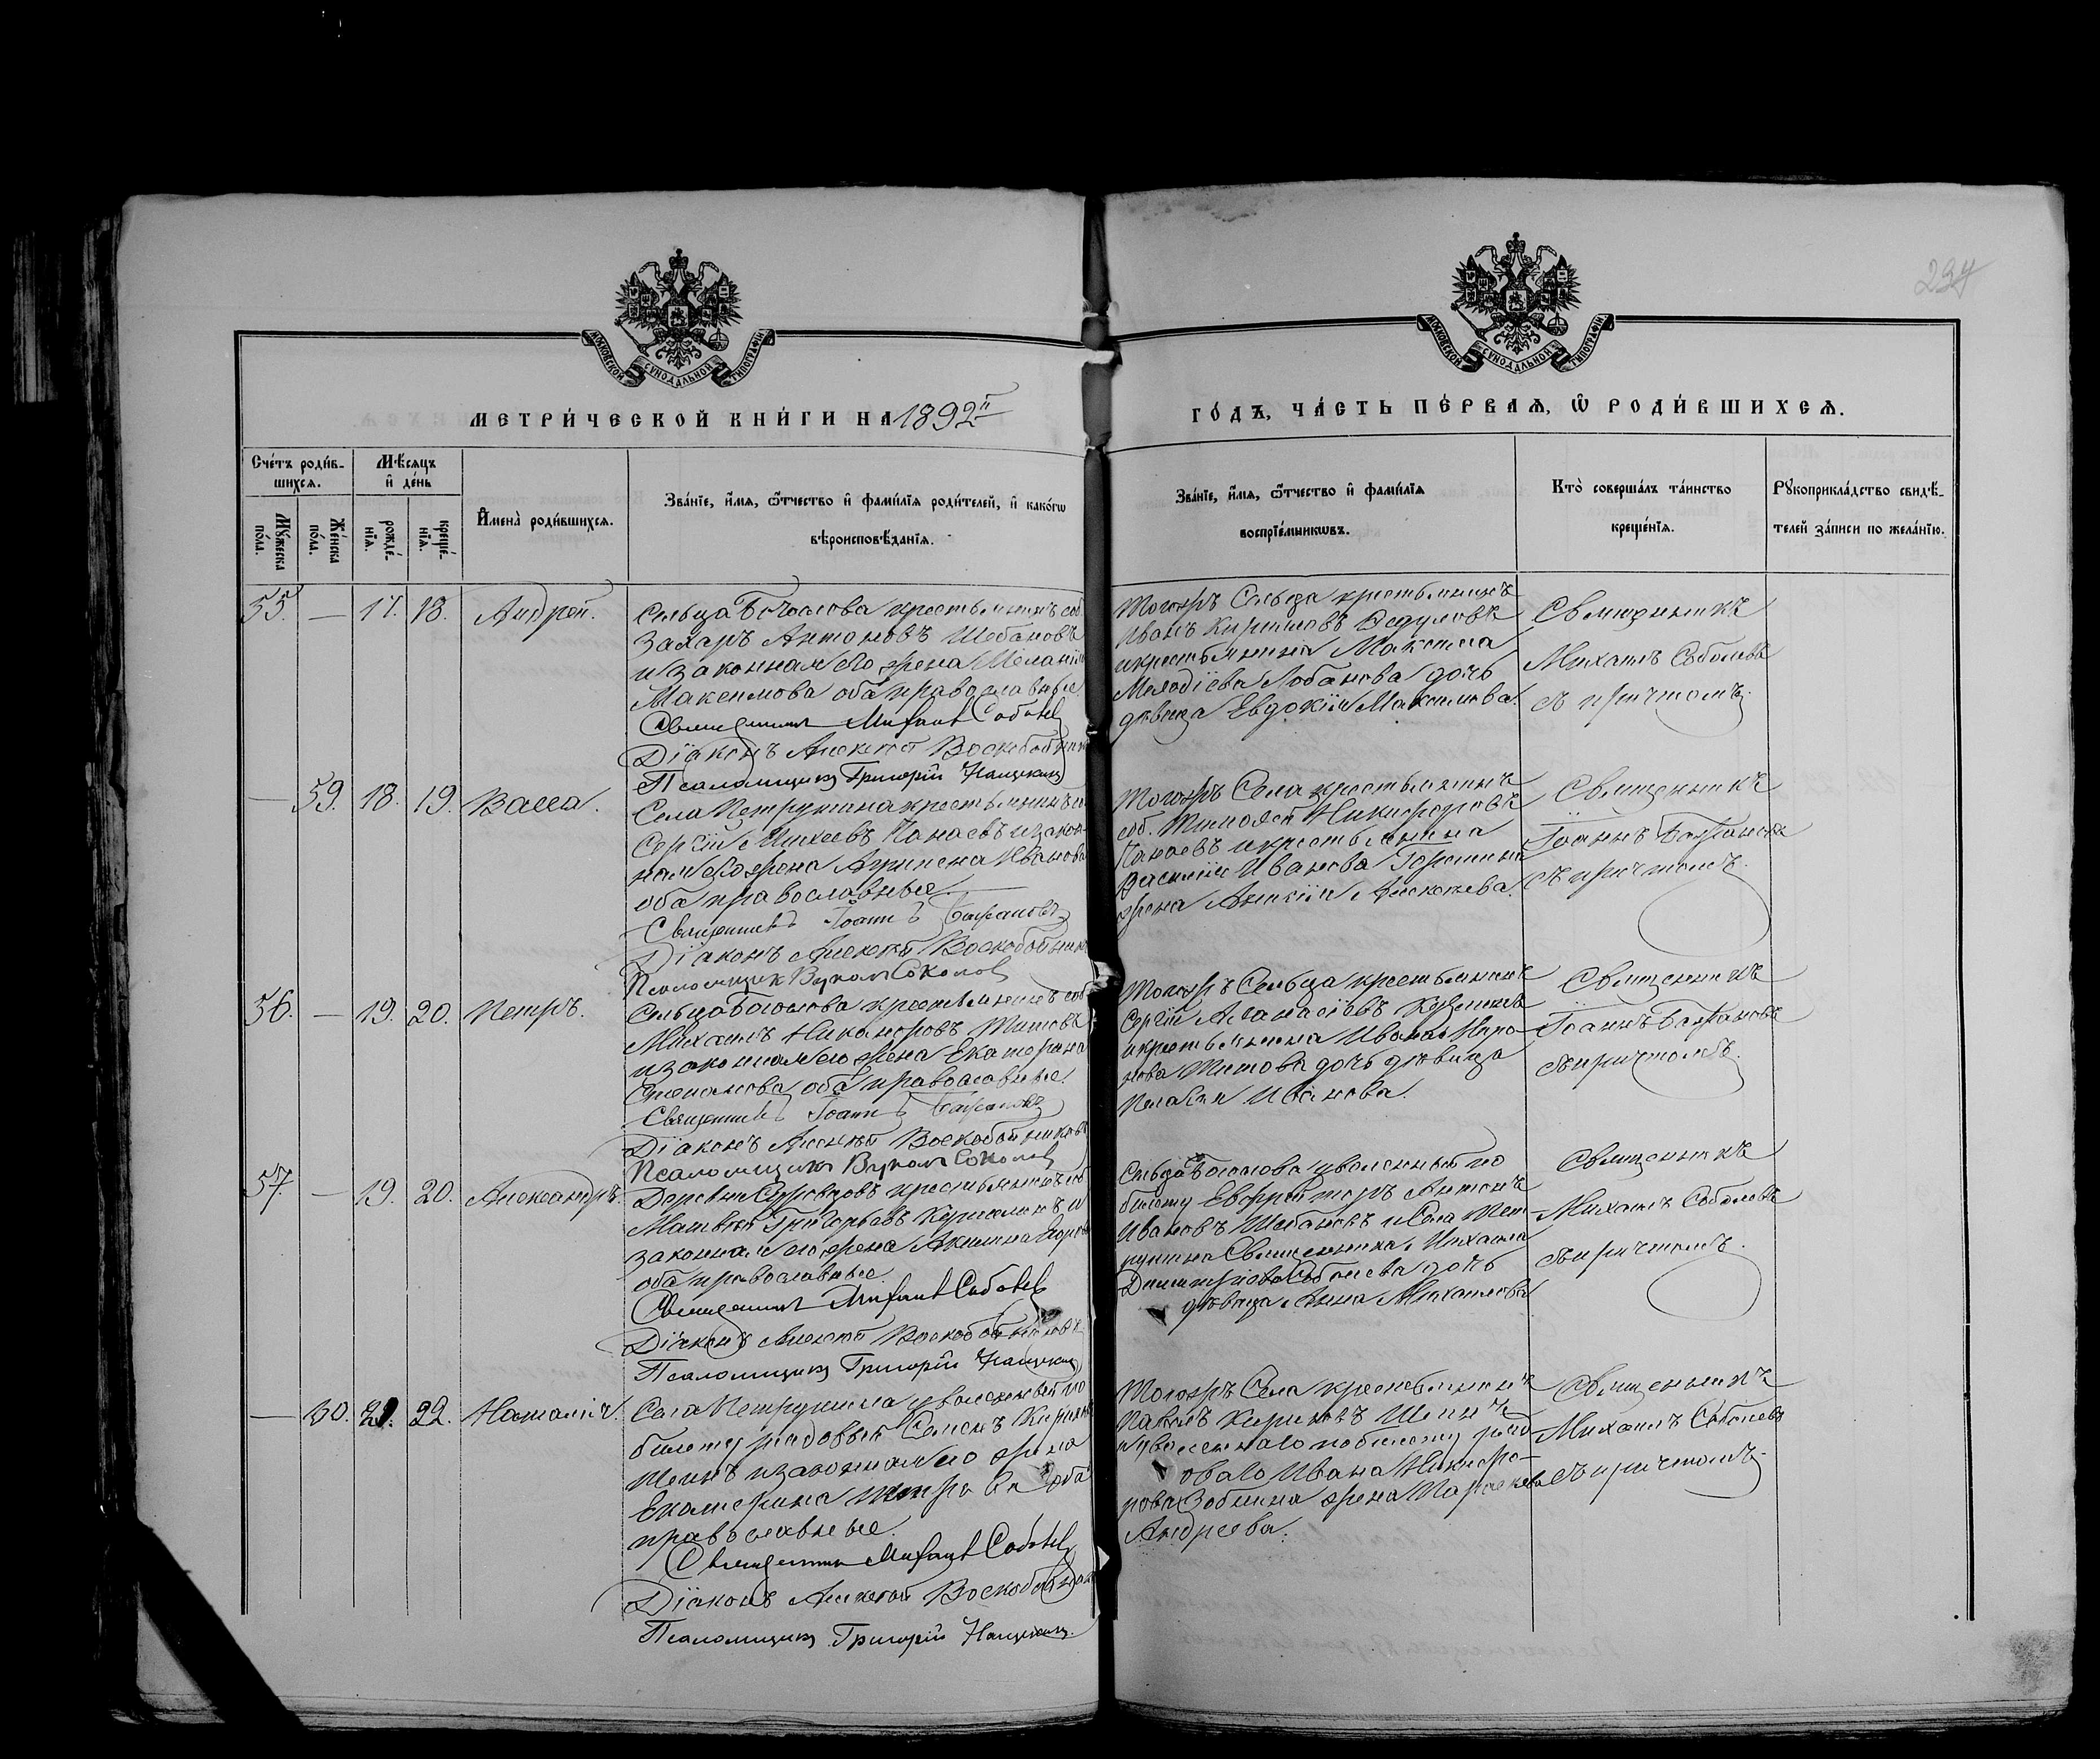 237
МОСКОВСКОЙ СУНОДАЛЬНОЙ ТИПОГРАФІИ
МОСКОВСКОЙ СУНОДАЛЬНОЙ ТИПОГРАФІИ
МЕТРИ́ЧЕСКОЙ КНИ́ГИ НА 1892й
ГО́ДЪ, ЧА́СТЬ ПЕ́РВАѦ, Ѽ РОДИ́ВШИХСѦ.
Сче́тъ роди́в-
шихсѧ.
Мꙋ́жеска по́ла.
Же́нска по́ла.
Мѣ́сѧцъ
и҆ де́нь
рожде́-
нїѧ.
креще́-
нїѧ.
И҆мена̀ роди́вшихсѧ.
Зва́нїе, и҆́мѧ, ѻ҆́тчество и҆ фами́лїѧ роди́телей, и҆ како́гѡ
вѣроисповѣ́данїѧ.
Зва́нїе, и҆́мѧ, ѻ҆́тчество и҆ фами́лїѧ
воспрїе́мникѡвъ.
Кто̀ соверша́лъ та́инство
креще́нїѧ.
Рꙋкоприкла́дство свидѣ́-
телей за́писи по жела́нїю.
55. — 17. 18. Андрей.
Сельца крестьянинъ соб
Захаръ Антоновъ Шебановъ
и законная его жена Меланія
Максимова оба православные.
Священникъ Михаилъ Соболевъ
Діаконъ Алексѣй Воскобойник
Псаломщикъ Григорій
Тогожъ Сельца крестьянинъ
Иванъ Кириловъ Федуловъ
и крестьянина Максима
Меѳодіева Лобанова дочь
дѣвица Евдокія Максимова.
Священникъ
Михаилъ Соболевъ
съ причтомъ.
— 59. 18. 19. Васса.
Села Петрушина крестьянинъ
Сергій Михеевъ Панаевъ и закон-
ная его жена Агрипена Иванова
оба православные.
Священникъ Іоаннъ
Діаконъ Алексѣй Воскобойник
Псаломщикъ Вуколъ Соколов
Тогожъ Села крестьянинъ
соб. Тимоѳей Никифоровъ
Панаевъ и крестьянина
Василія Иванова
жена Алексѣева.
Священникъ
Іоаннъ
съ причтомъ.
56. — 19. 20. Петръ.
Сельца крестьянинъ соб
Михаилъ Никаноровъ Титовъ
и законная его жена Екатерина
Степанова оба православные.
Священникъ Іоаннъ
Діаконъ Алексѣй Воскобойниковъ
Псаломщикъ Вуколъ Соколов
Тогожъ Сельца крестьянинъ
Сергій Аѳанасіевъ
и крестьянина Ивана Миро-
нова Титова дочь дѣвица
Пелагія Иванова.
Священникъ
Іоаннъ
съ причтомъ.
57. — 19. 20. Александръ.
Деревни крестьянинъ соб
Матвѣй Григорьевъ и
законная его жена Акилина
оба православные.
Священникъ Михаилъ Соболевъ
Діаконъ Алексѣй Воскобойниковъ
Псаломщикъ Григорій
Сельца уволенный по
билету Ефрейторъ Антонъ
Ивановъ Шебановъ и Села Пет-
рушина Священника Михаила
Димитріева Соболева дочь
дѣвица Анна Михаилова
Священникъ
Михаилъ Соболевъ
съ причтомъ.
— 60. 21. 22. Наталія.
Села Петрушина уволенный по
билету рядовый Семенъ
и законная его жена
Екатерина оба
православные.
Священникъ Михаилъ Соболевъ
Діаконъ Алексѣй Воскобойник
Псаломщикъ Григорій
Тогожъ Села крестьянинъ
Павелъ
и уволеннаго по билету рядо-
ваго Ивана Никифо-
рова Зобнина жена Параскева
Андреева.
Священникъ
Михаилъ Соболевъ
съ причтомъ.